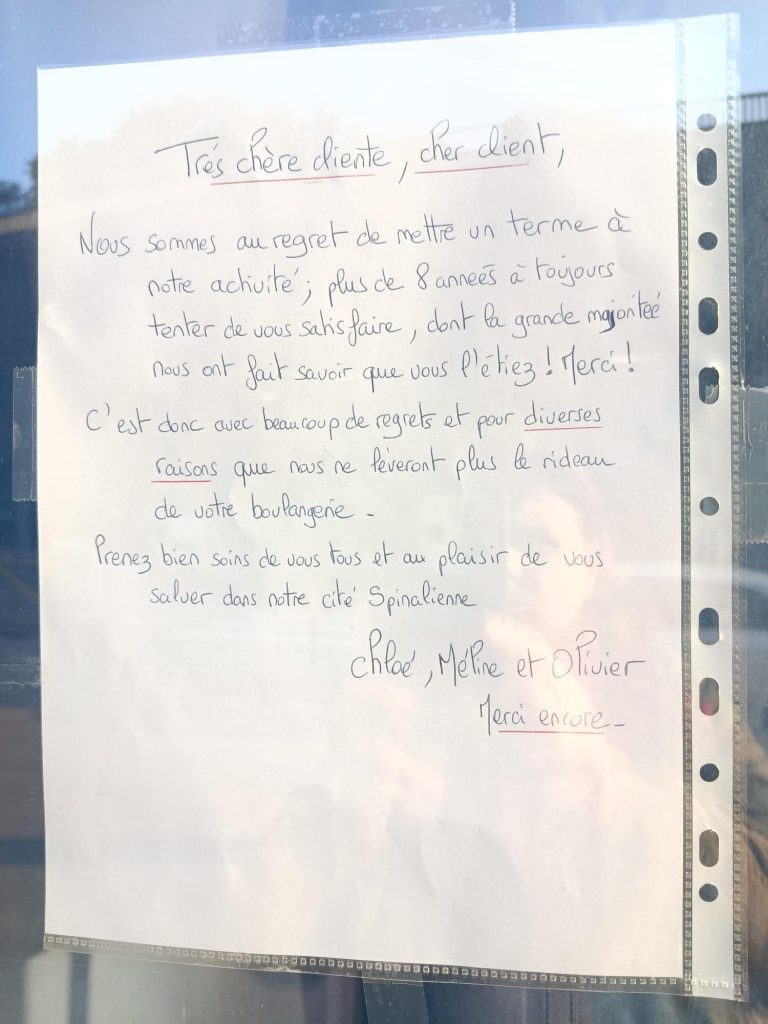 Trés chère cliente, cher client,
Nous sommes au regret de mettre un terme à
notre activité ; plus de 8 années à toujours
tenter de vous satisfaire, dont la grande majoriteé
nous ont fait savoir que vous l'étiez ! Merci !
C'est donc avec beaucoup de regrets et pour diverses
raisons que nous ne lèveront plus le rideau
de votre boulangerie -
Prenez bien soins de vous tous et au plaisir de vous
saluer dans notre cité Spinalienne
Chloé, Méline et Olivier
Merci encore -